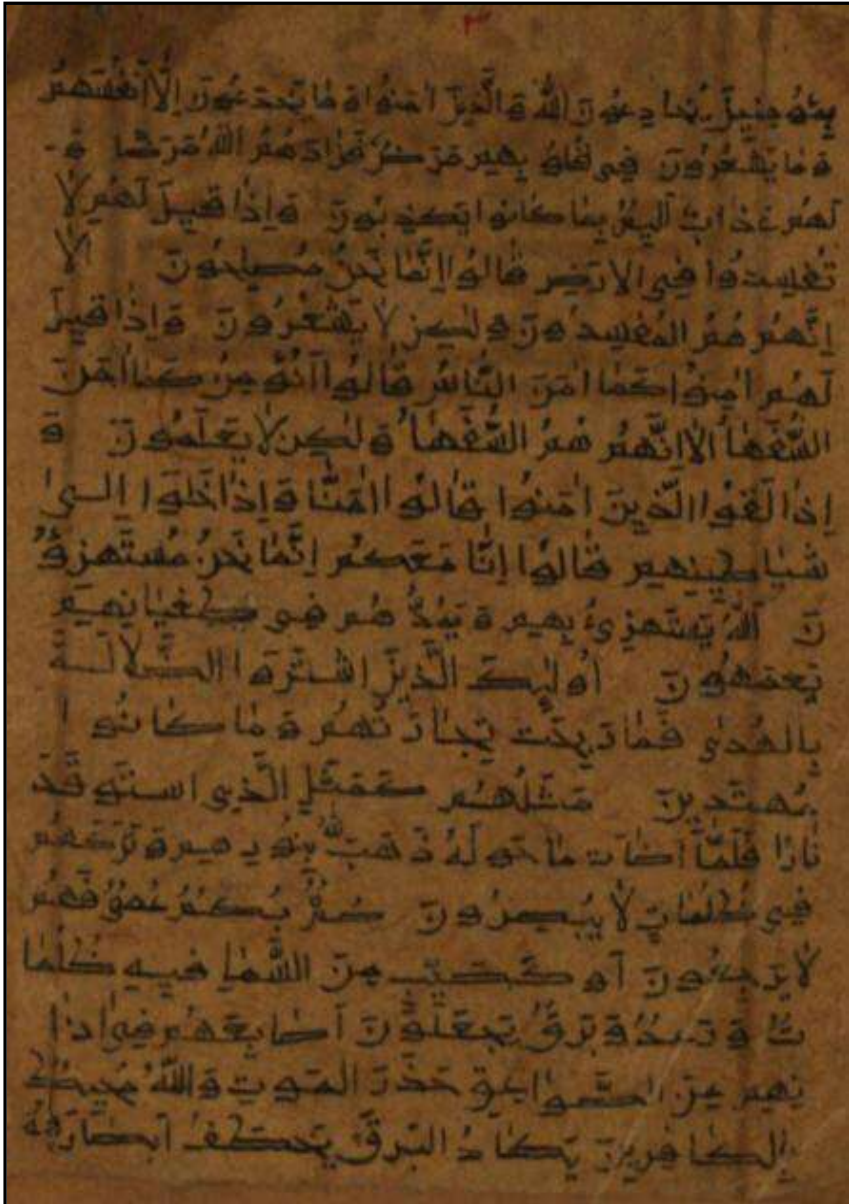 ٣
بمؤمنين يخادعون الله والذين امنوا وما يخدعون الا انفسهم
وما يشعرون في قلوبهم مرض فزادهم الله مرضا و
لهم عذاب اليم بما كانوا يكذبون واذا قيل لهم لا
تفسدوا في الارض قالوا انما نحن مصلحون الا
انهم هم المفسدون ولكن لا يشعرون واذا قيل
لهم امنوا كما امن الناس قالوا انؤمن كما امن
السفها الا انهم هم السفها ولكن لا يعلمون و
اذا لقوا الذين امنوا قالوا امنا واذا خلوا الى
شياطينهم قالوا انا معكم انما نحن مستهزؤ
ن الله يستهزئ بهم ويمدهم في طغيانهم
يعمهون اولئك الذين اشتروا الضلالة
بالهدى فما ربحت تجارتهم وما كانوا
مهتدين مثلهم كمثل الذي استوقد
نارا فلما اضات ما حوله ذهب الله بنورهم وتركهم
في ظلمات لا يبصرون صم بكم عمي فهم
لا يرجعون او كصيب من السما فيه ظلما
ت ورعد وبرق يجعلون اصابعهم في اذا
نهم من الصواعق حذر الموت والله محيط
بالكافرين يكاد البرق يخطف ابصارهم